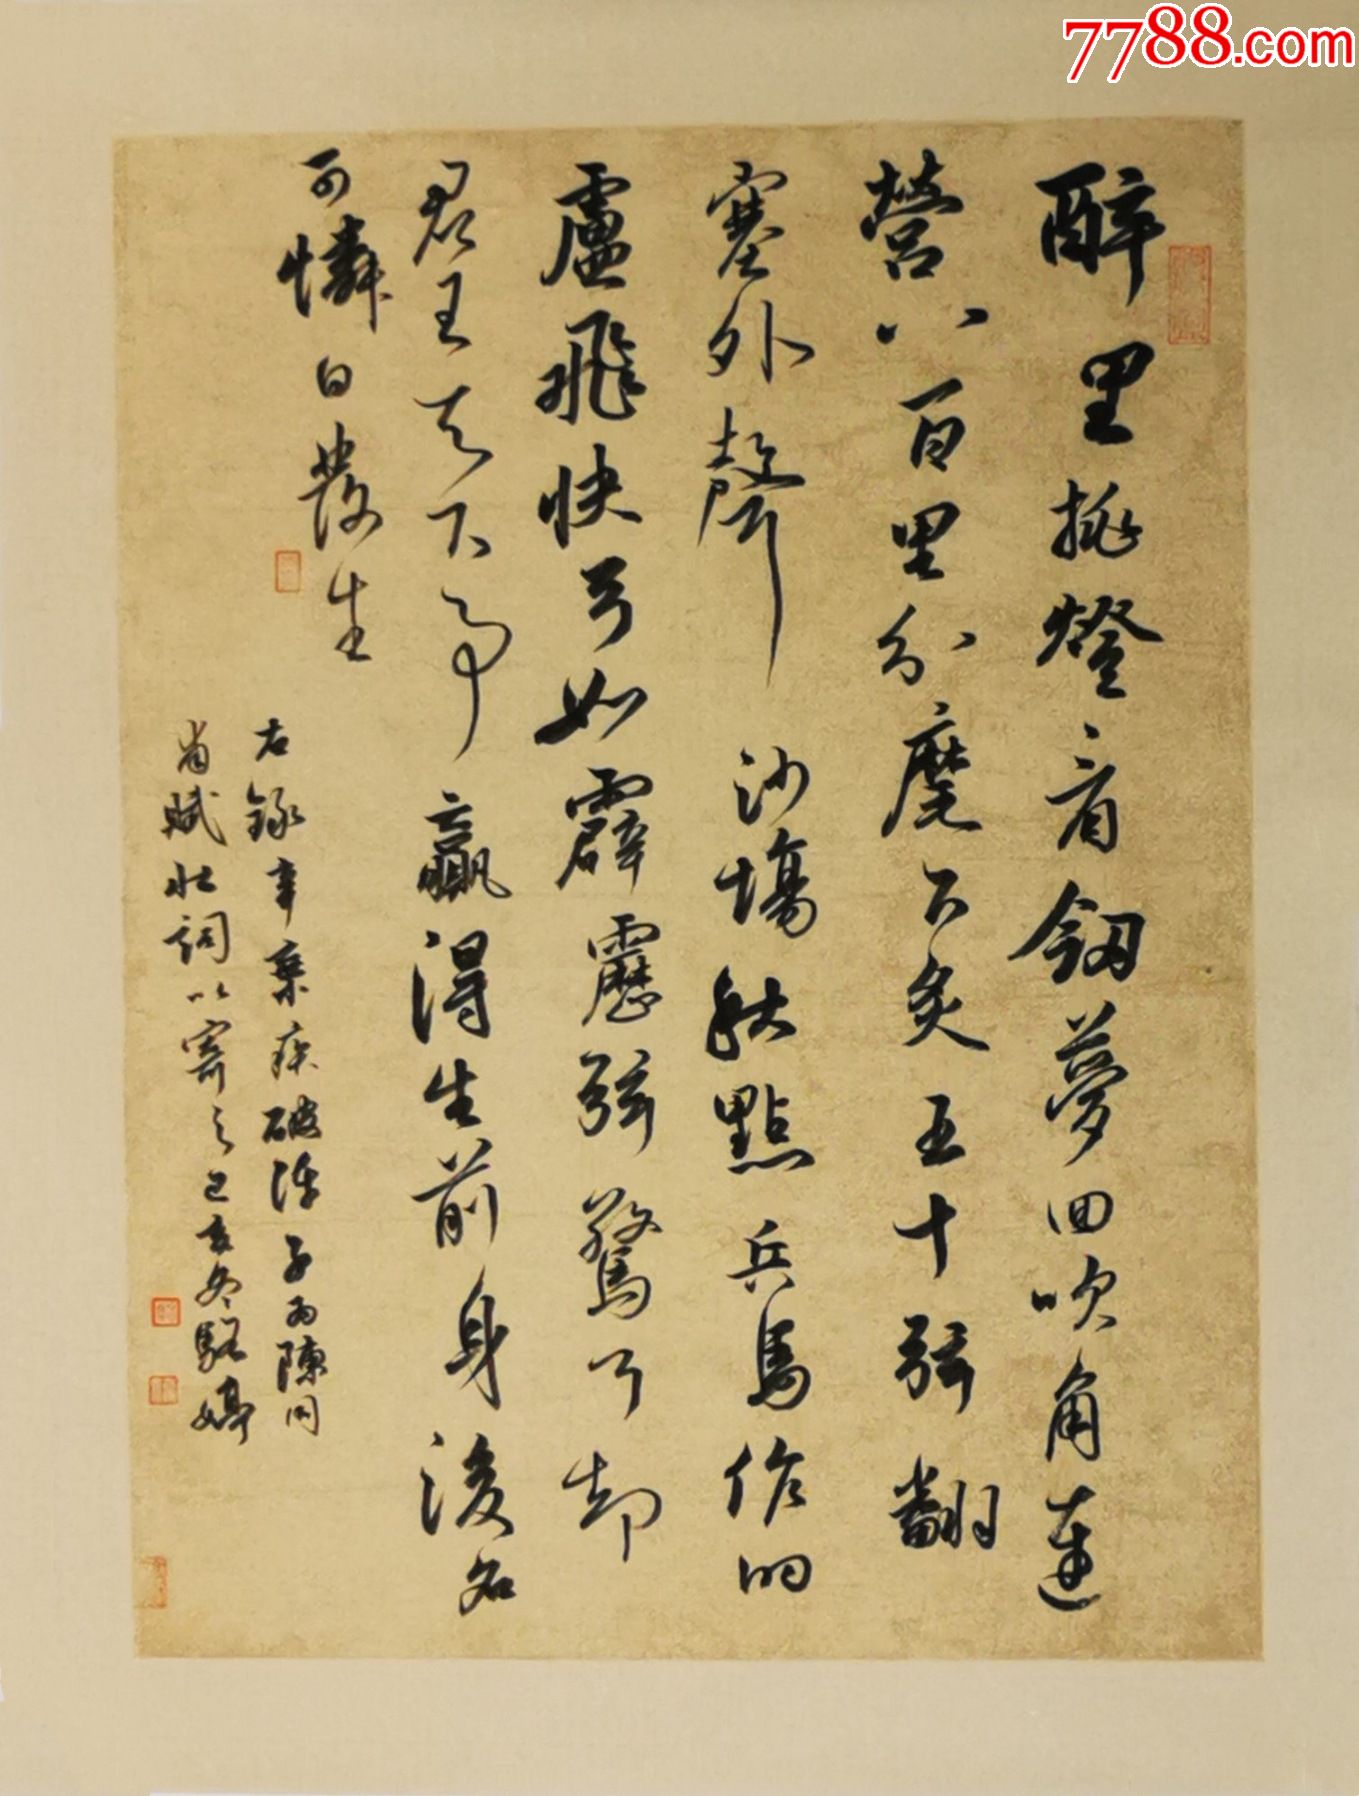 7788.com
醉里挑燈看劍夢回吹角連
營八百里分麾下炙五十弦翻
塞外聲沙場秋點兵馬作的
盧飛快弓如霹靂弦驚了却
君王天下事贏得生前身後名
可憐白髮生
右錄辛棄疾破陣子為陳同
甫賦壯詞以寄之己亥冬駱婷